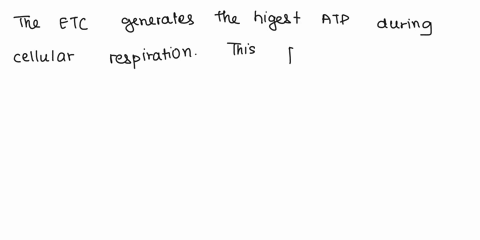 The ETC generates the higest ATP during
cellular respiration. This